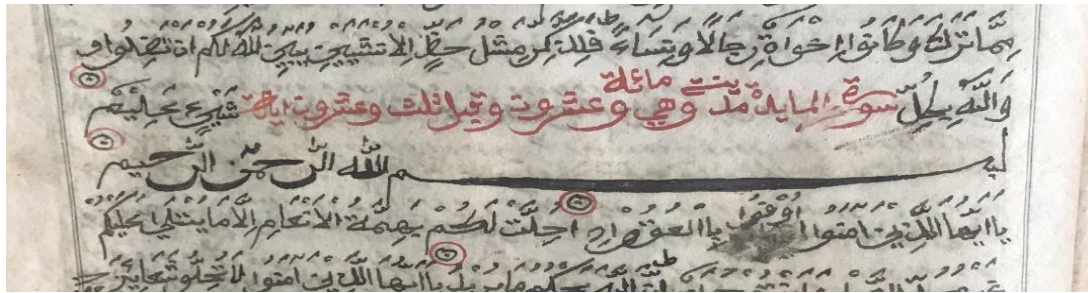 مِمَّا تَرَكَ وَإِن كَانُوا إِخْوَةً رِجَالًا وَنِسَاءً فَلِلذَّكَرِ مِثْلُ حَظِّ الْأُنثَيَيْنِ يُبَيِّنُ اللَّهُ لَكُمْ أَن تَضِلُّوا وَ
وَاللَّهُ بِكُلِّ سورة المايدة مدنية وهي مائة وعشرون وقيل ثلث وعشرون اية شَيْءٍ عَلِيمٌ
بسم الله الرحمن الرحيم
يَا أَيُّهَا الَّذِينَ آمَنُوا أَوْفُوا بِالْعُقُودِ أُحِلَّتْ لَكُم بَهِيمَةُ الْأَنْعَامِ إِلَّا مَا يُتْلَى عَلَيْكُمْ
إِنَّ اللَّهَ يَحْكُمُ مَا يُرِيدُ يَا أَيُّهَا الَّذِينَ آمَنُوا لَا تُحِلُّوا شَعَائِرَ